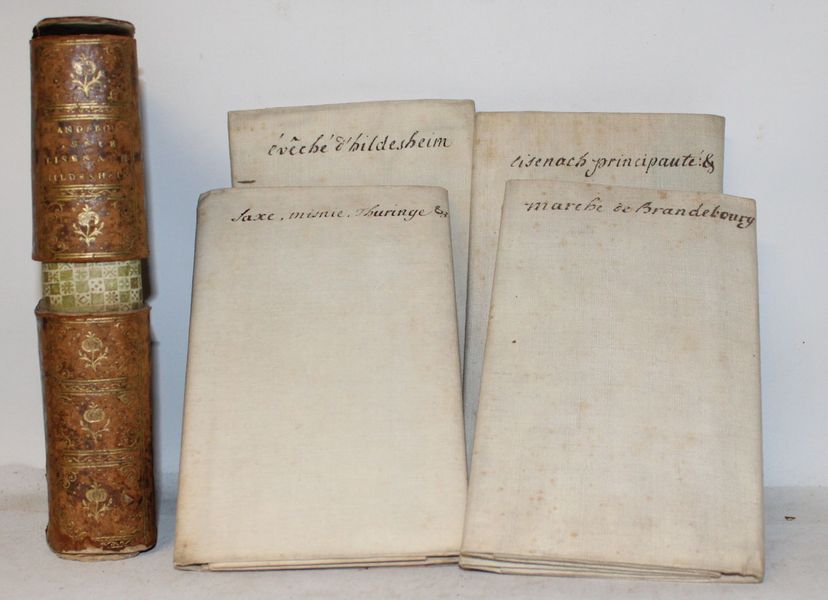 ANDEBO
EISENA
HILDESHE
évêché d'hildesheim
eisenach principauté &
Saxe, misnie, Thuringe &
marche de Brandebourg